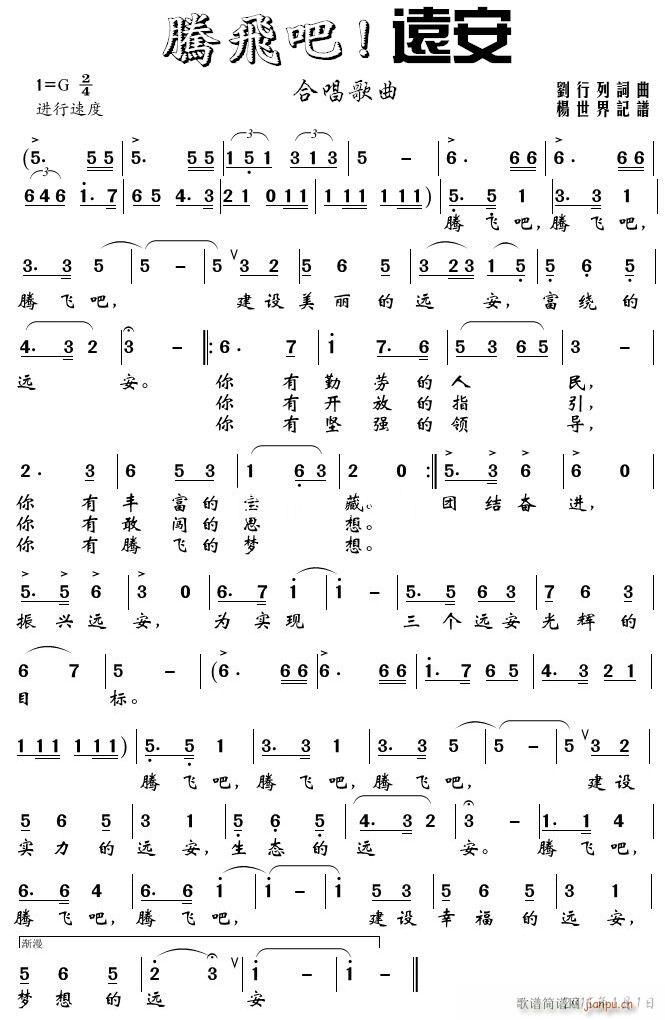 騰飛吧！遠安
1=G 2/4
合唱歌曲
劉行列詞曲
进行速度
楊世界記譜
(5. 55 | 5. 55 | 1 5 1 3 1 3 | 5 - | 6. 66 | 6. 66 |
6 4 6 1. 7 | 65 4. 3 | 21 011 | 111 111) | 5. 5 1 | 3. 3 1 |
腾飞吧，腾飞吧，
3. 3 5 | 5 - | 5 3 2 | 5 6 5 | 3 23 1 5 | 5 6 5 |
腾飞吧， 建设美丽的远安，富绕的
4. 3 2 | 3 - |: 6. 7 | 1 7. 6 | 5 3 6 5 | 3 - |
远安。 你有勤劳的人民，
你有开放的指引，
你有坚强的领导，
2. 3 | 6 5 3 | 1 6 3 | 2 0 :| 5. 3 6 | 6 0 |
你有丰富的宝藏。 团结奋进，
你有敢闯的思想。
你有腾飞的梦想。
5. 5 6 | 3 0 | 6. 7 1 | 1 - | 3. 5 6 3 | 7 6 3 |
振兴远安， 为实现 三个远安光辉的
6 7 | 5 - | (6. 66 | 6. 66 | 1. 7 6 5 | 4. 3 2 1 |
目标。
1 11 1 11) | 5. 5 1 | 3. 3 1 | 3. 3 5 | 5 - | 5 3 2 |
腾飞吧，腾飞吧，腾飞吧， 建设
5 6 5 | 3 1 | 5 6 5 | 4. 3 2 | 3 - | 1. 1 4 |
实力的远安，生态的远安。 腾飞吧，
6. 6 4 | 6. 6 1 | 1 - | 1 5 3 | 5 5 3 | 3 1 |
腾飞吧，腾飞吧， 建设幸福的远安，
渐漫
5 6 5 | 2 3 | 1 - | 1 - |
梦想的远安
歌谱简谱网
jianpu.cn